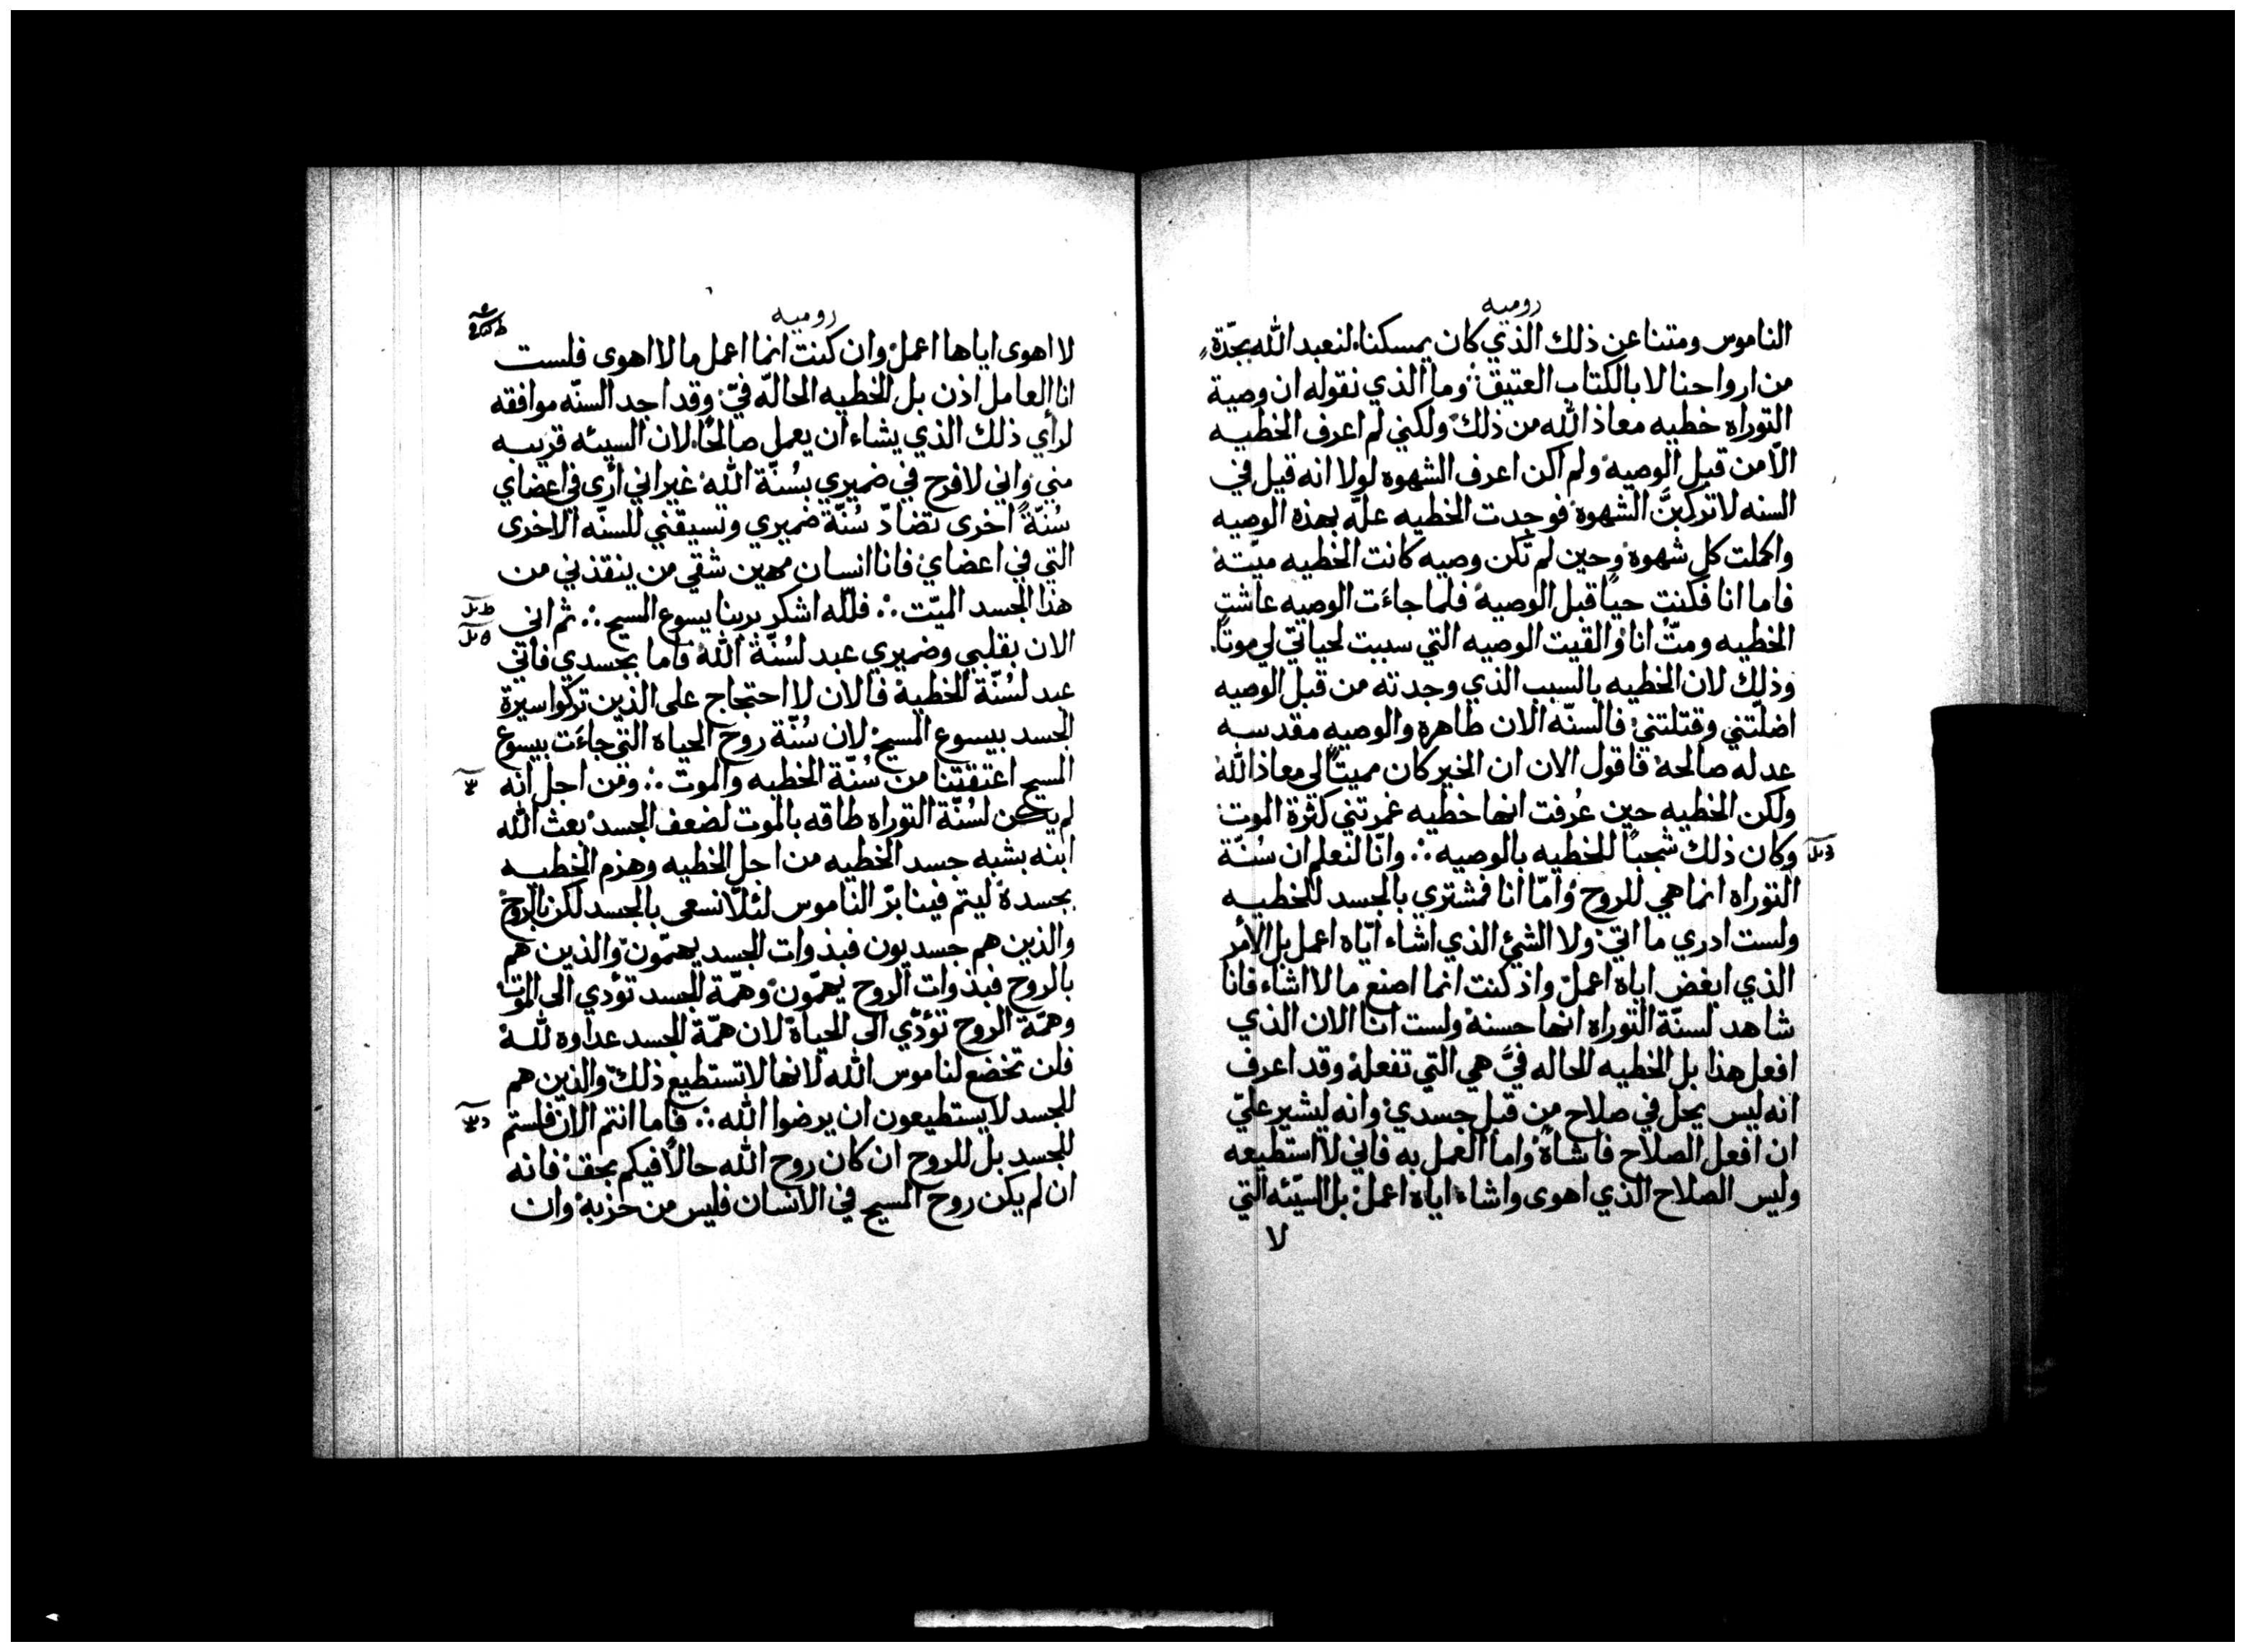 روميه
الناموس ومتنا عن ذلك الذي كان يمسكنا، لنعبد الله بجدّةٍ
من ارواحنا لا بالكتاب العتيق ؞ وما الذي نقوله ان وصية
التوراه خطيه معاذ الله من ذلك ولكني لم اعرف الخطيه
الّا من قبل الوصيه ولم اكن اعرف الشهوه لولا انه قيل في
السنه لا تركبنَّ الشهوه فوجدت الخطيه علّه بهذه الوصيه
واكملت كل شهوه وحين لم تكن وصيه كانت الخطيه ميّته
فاما انا فكنت حيًا قبل الوصيه فلما جاءَت الوصيه عاشت
الخطيه ومتُّ انا والقيت الوصيه التي سببت لحياتي لي موتًا.
وذلك لان الخطيه بالسبب الذي وجدته من قبل الوصيه
اضلّتني وقتلتني فالسنّه الان طاهره والوصيه مقدسه
عدله صالحه فاقول الان ان الخير كان مميتًا لي معاذ الله
ولكن الخطيه حين عُرفت انها خطيه غمرتني كثرة الموت
وكان ذلك شجبًا للخطيه بالوصيه ؞ وانّا لنعلم ان سُنّة
التوراه انما هي للروح وامّا انا فمشتري بالجسد للخطيه
ولست ادري ما اتي ولا الشئ الذي اشاء ايّاه اعمل بل الأمر
الذي ابغض اياه اعمل واذ كنت انما اصنع ما لا اشاء فانا
شاهد لسنّة التوراه انها حسنه ولست انا الان الذي
افعل هذا بل الخطيه الحاله فيَّ هي التي تفعله وقد اعرف
انه ليس يحل في صلاح من قبل جسدي وانه ليشير عليّ
ان افعل الصلاح فاشاهُ واما العمل به فاني لا استطيعه
وليس الصلاح الذي اهوى واشاء اياه اعمل بل السيّئه التي
لا
روميه
لا اهوى اياها اعمل وان كنت انما اعمل ما لا اهوى فلست
انا العامل اذن بل الخطيه الحالّه فيّ وقد اجد السنّه موافقه
لرأي ذلك الذي يشاء ان يعمل صالحًا، لان السيئه قريبه
مني واني لافرح في ضميري بسُنّة الله غير اني أرى في اعضاي
سُنّةً اخرى تضادّ سُنّة ضميري وتسيقني للسنّه الاخرى
التي في اعضاي فانا انسان مهين شقي من ينقذني من
هذا الجسد الميّت ؞ فللّه اشكر بربنا يسوع المسيح ؞ ثم اني
الان بقلبي وضميري عبد لسُنّة الله فاما بجسدي فأني
عبد لسُنّة الخطية فالان لا احتجاج على الذين تركوا سيرة
الجسد بيسوع المسيح لان سُنّة روح الحياه التي جاءَت بيسوع
المسيح اعتقتنا من سُنّة الخطيه والموت ؞ ومن اجل انه
لم يكن لسُنّة التوراه طاقه بالموت لضعف الجسد بعث الله
ابنه بشبه جسد الخطيه من اجل الخطيه وهزم الخطيه
بجسده ليتم فينا برّ الناموس لئلّا نسعى بالجسد لكن بالروح
والذين هم جسديون فبذوات الجسد يهمّون والذين هم
بالروح فبذوات الروح يهمّون وهمّة الجسد تؤدي الى الموت
وهمّة الروح تؤدّي الى الحياة لان همّة الجسد عداوه لله
فلن تخضع لناموس الله لانها لا تستطيع ذلك والذين هم
للجسد لا يستطيعون ان يرضوا الله ؞ فاما انتم الان فلستم
للجسد بل للروح ان كان روح الله حالًا فيكم بحق فانه
ان لم يكن روح المسيح في الانسان فليس من حزبه وان